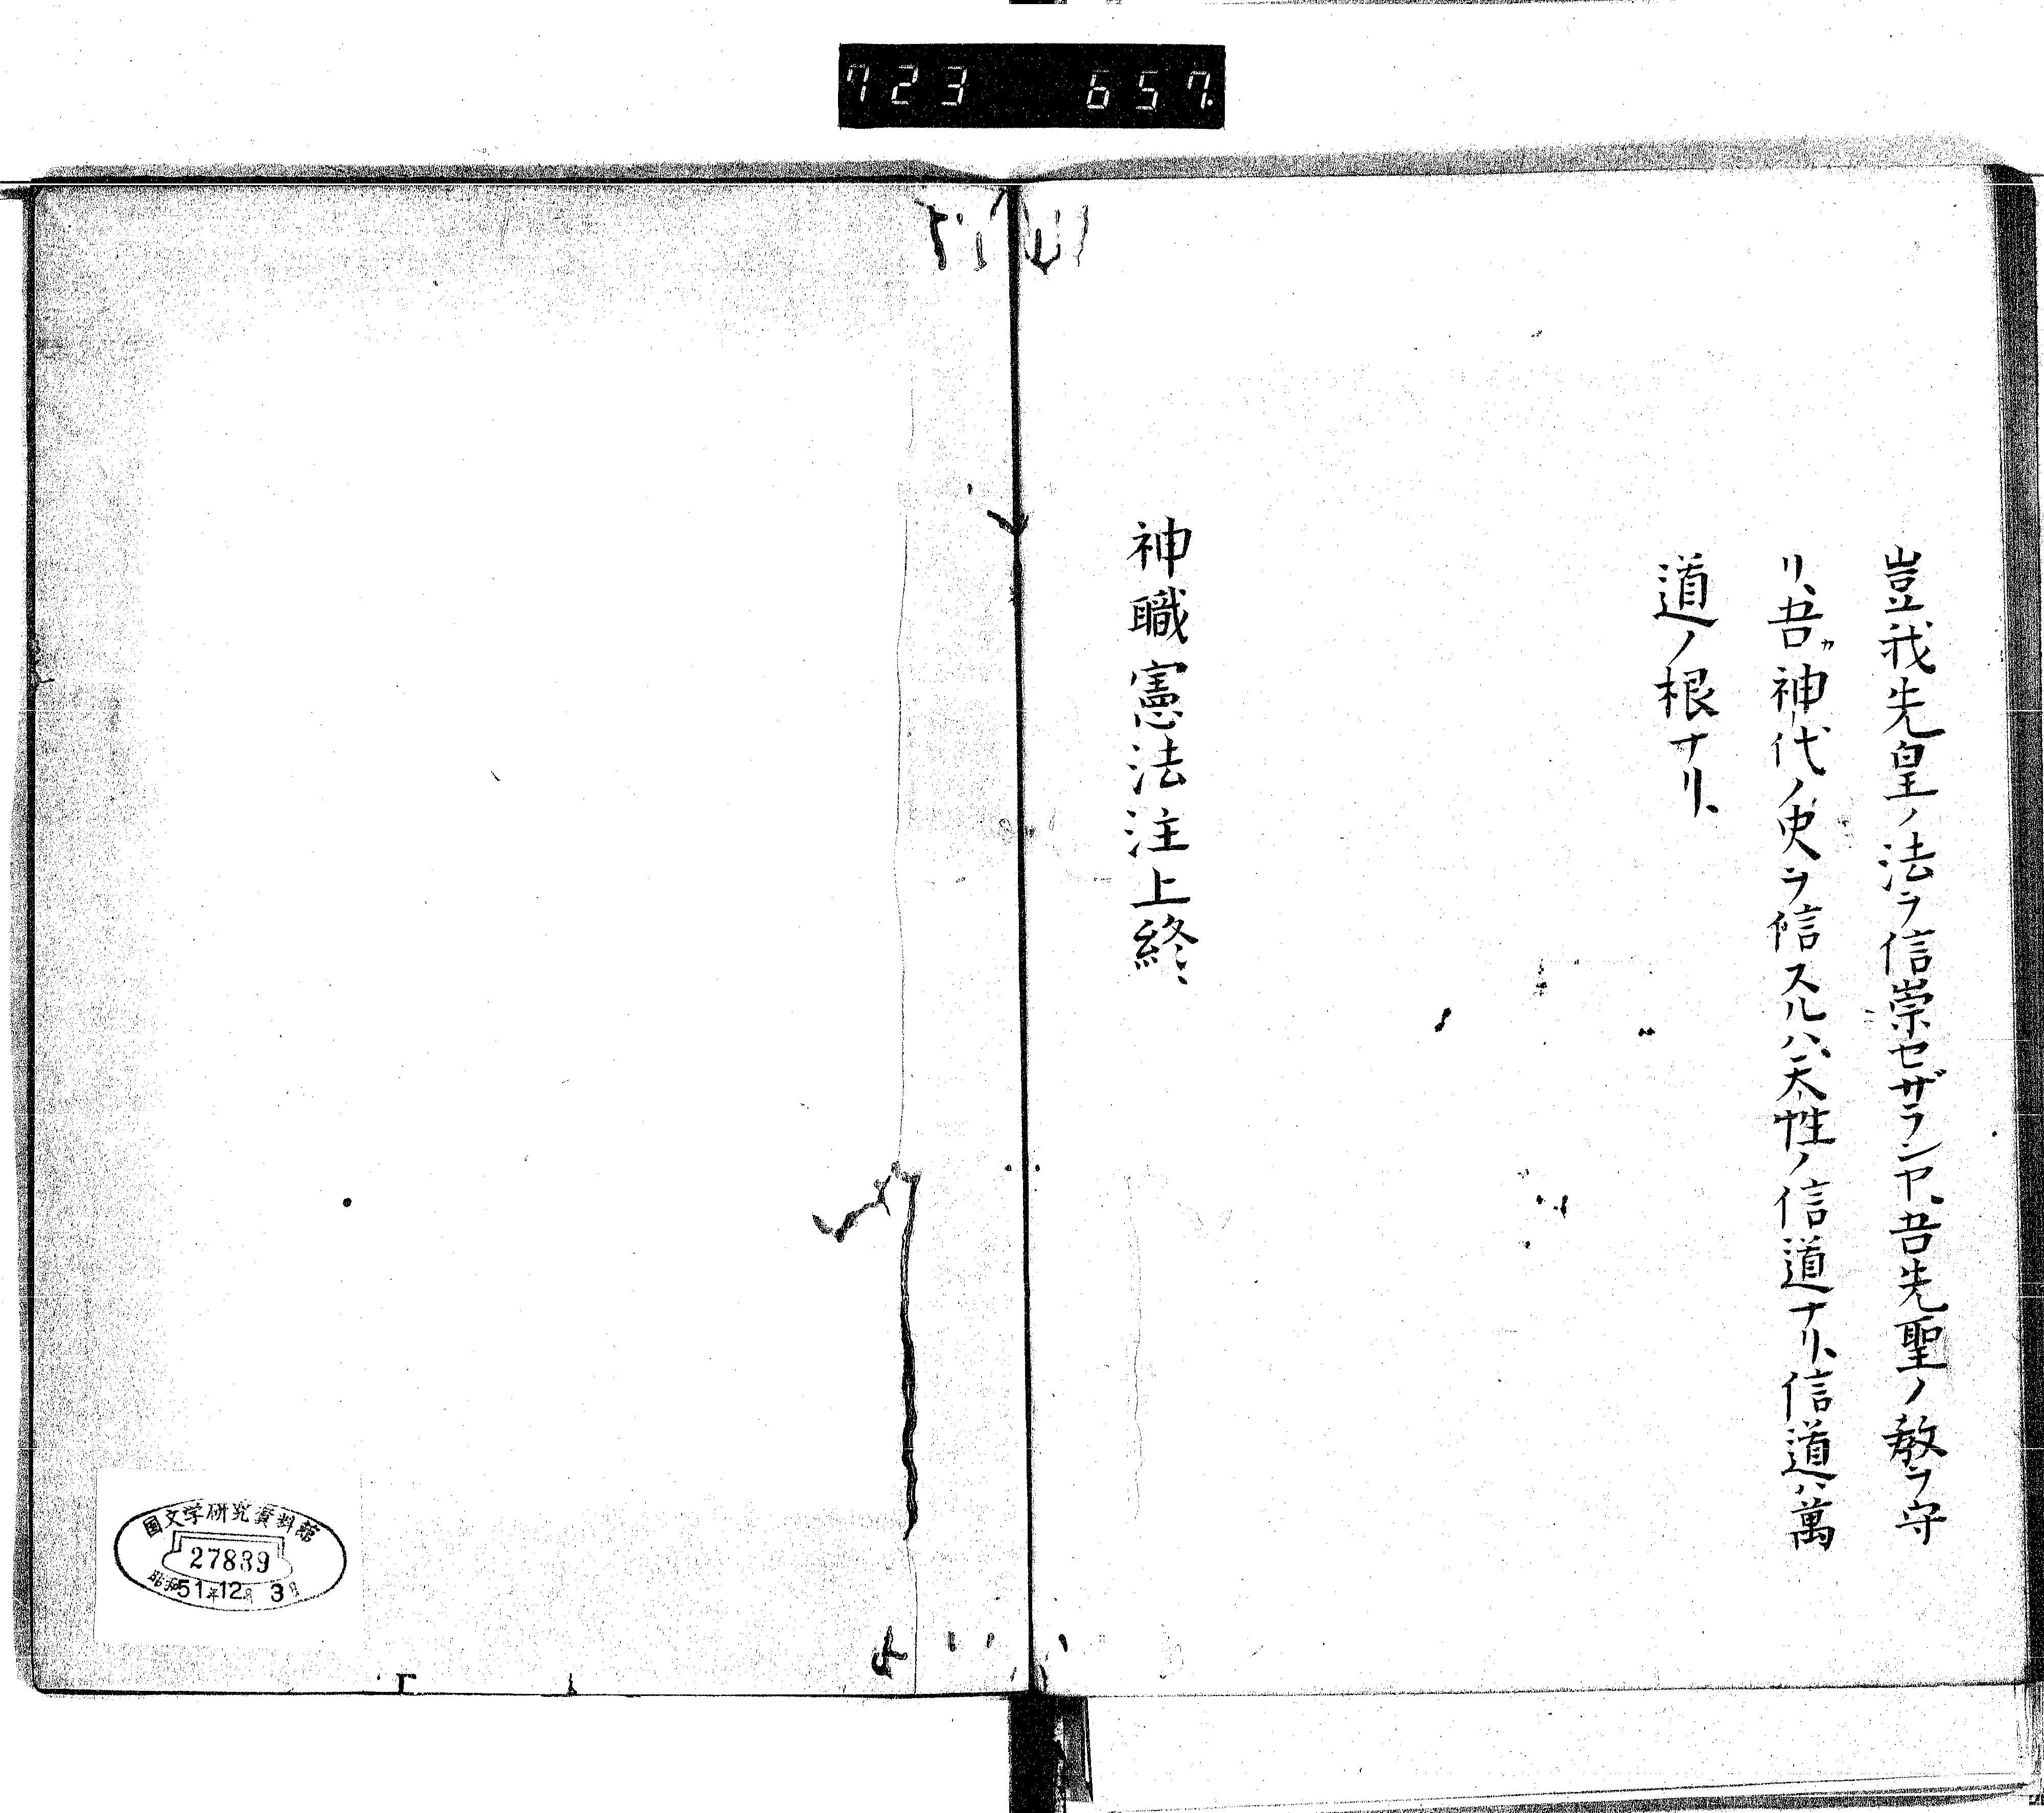 723 657
豈我先皇ノ法ヲ信崇セザランヤ、吾先聖ノ教ヲ守
リ、吾ガ神代ノ史ヲ信スルハ、天性ノ信道ナリ、信道ハ萬
道ノ根ナリ、
神職憲法注上終
國文学研究資料館
27839
昭和51年12月3日